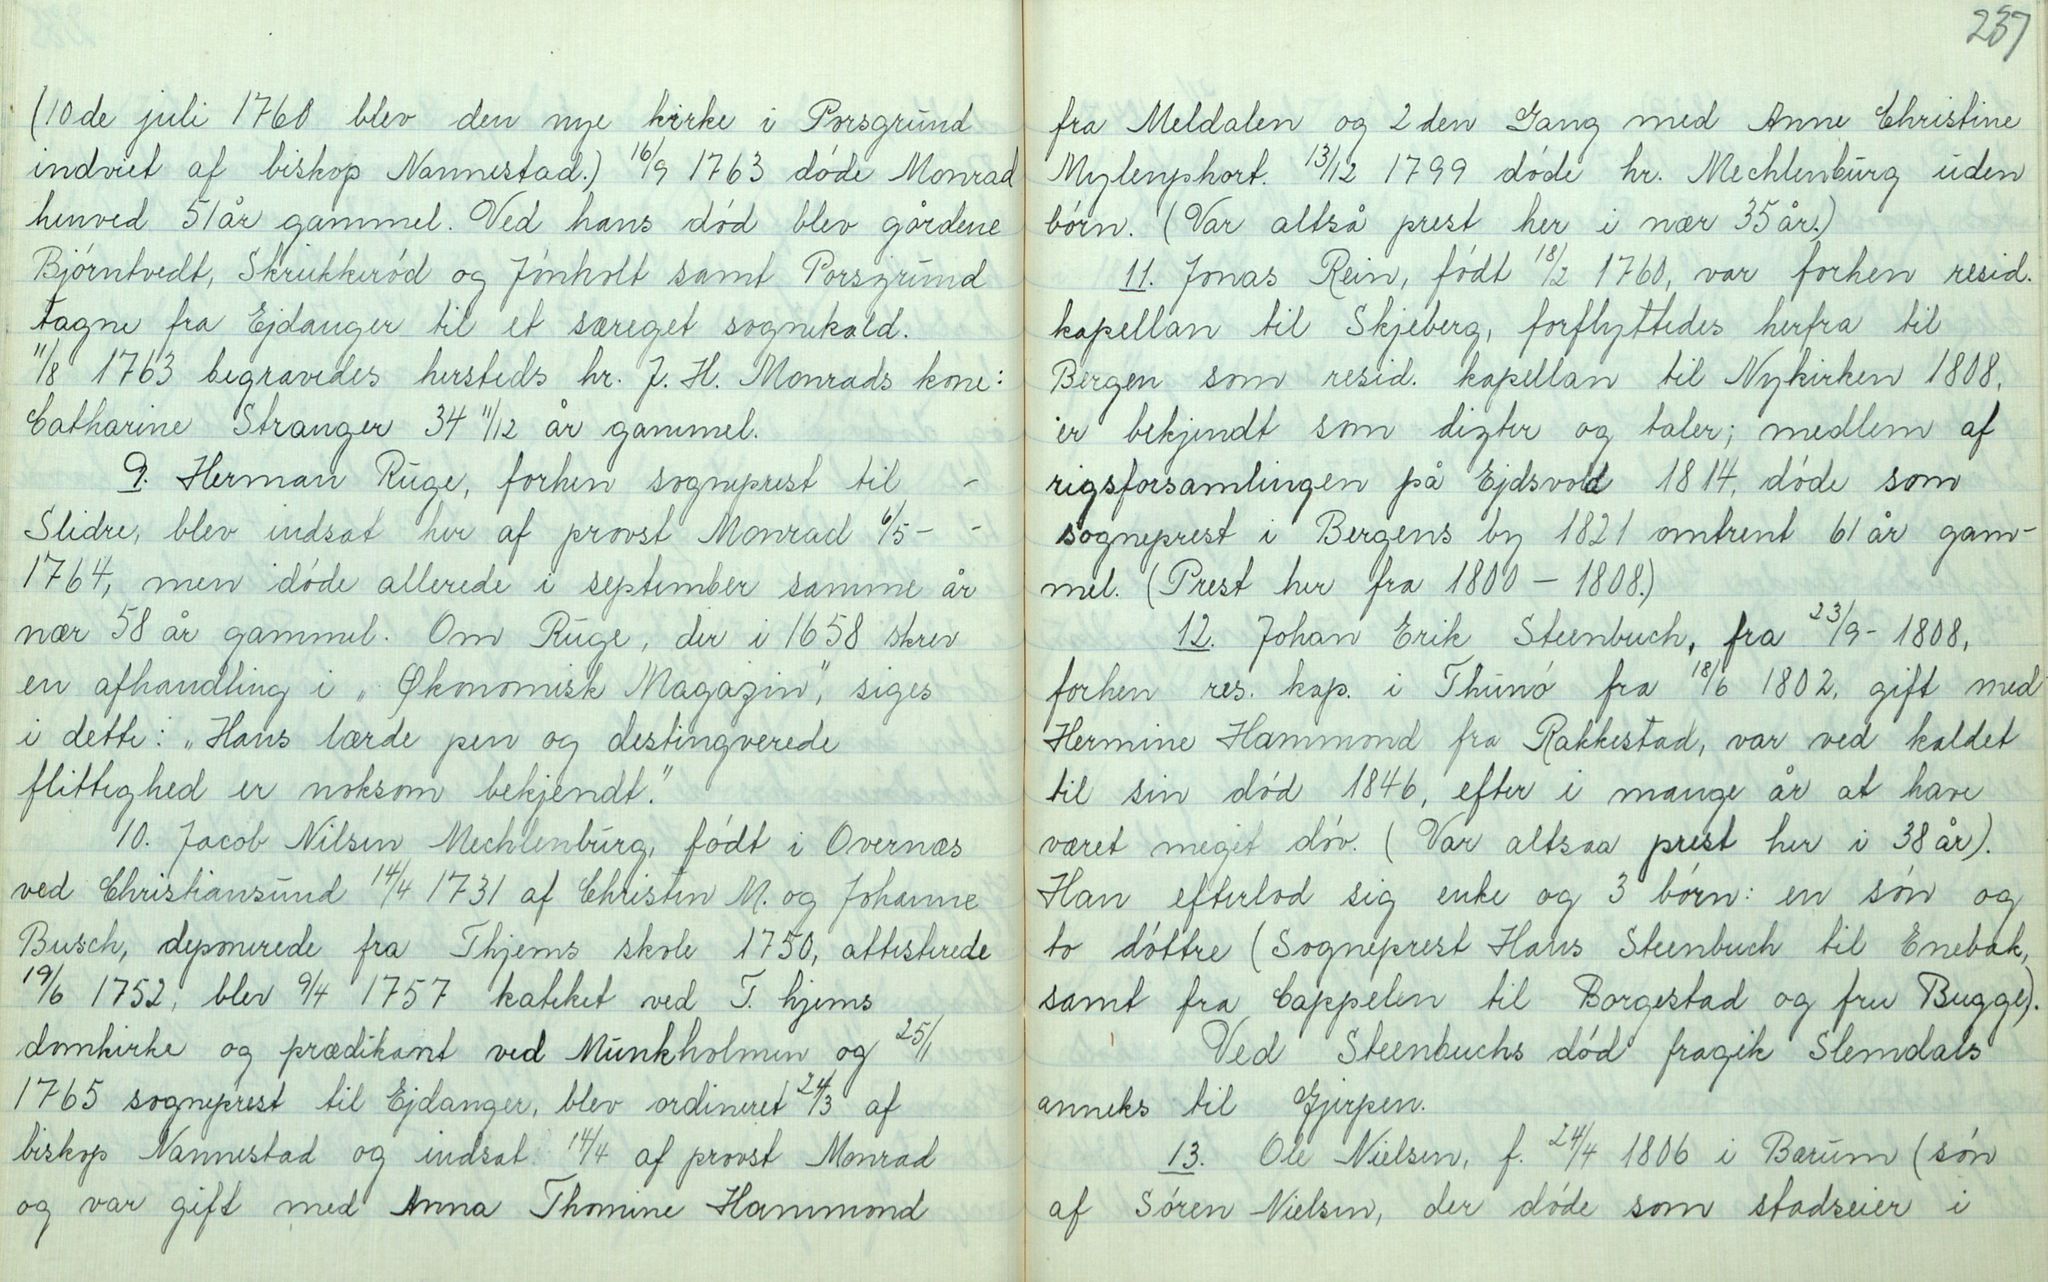 (10de juli 1760 blev den nye kirke i Porsgrund
indviet af biskop Nannestad.) 16/9 1763 døde Monrad
henved 51 år gammel. Ved hans død blev gårdene
Bjørntvedt, Skrukkerød og Jønholt samt Porsgrund
tagne fra Ejdanger til et særeget sognekald.
11/8 1763 begravedes hersteds hr. J. H. Monrads kone:
Catharine Stranger 34 11/12 år gammel.
9. Herman Ruge, forhen sogneprest til -
Slidre, blev indsat her af provst Monrad 6/5 - -
1764, men døde allerede i september samme år
nær 58 år gammel. Om Ruge, der i 1658 skrev
en afhandling i „Økonomisk Magazin", siges
i dette: „Hans lærde pen og destingverede
flittighed er noksom bekjendt."
10. Jacob Nilsen Mechlenburg, født i Overnæs
ved Christiansund 14/4 1731 af Christen M. og Johanne
Busch, deponerede fra Thjems skole 1750, attesterede
19/6 1752, blev 9/4 1757 kateket ved T. hjems
domkirke og prædikant ved Munkholmen og 25/1
1765 sogneprest til Ejdanger, blev ordineret 24/3 af
biskop Nannestad og indsat 14/4 af provst Monrad
og var gift med Anna Thomine Hammond
237
fra Meldalen og 2den Gang med Anne Christine
Mylenphort. 13/12 1799 døde hr. Mechlenburg uden
børn. (Var altså prest her i nær 35 år.)
11. Jonas Rein, født 18/2 1760, var forhen resid.
kapellan til Skjeberg, forflyttedes herfra til
Bergen som resid. kapellan til Nykirken 1808,
er bekjendt som digter og taler; medlem af
rigsforsamlingen på Ejdsvold 1814, døde som
sogneprest i Bergens by 1821 omtrent 61 år gam-
mel. (Prest her fra 1800 - 1808.)
12. Johan Erik Steenbuch, fra 23/9 - 1808,
forhen res. kap. i Thunø fra 18/6 1802, gift med
Hermine Hammond fra Rakkestad, var ved kaldet
til sin død 1846, efter i mange år at have
været meget døv. (Var altsaa prest her i 38 år).
Han efterlod sig enke og 3 børn: en søn og
to døttre (Sogneprest Hans Steenbuch til Enebak,
samt fra Cappelen til Borgestad og fru Bugge).
Ved Steenbuchs død fragik Slemdals
anneks til Gjerpen.
13. Ole Nielsen, f. 24/4 1806 i Bærum (søn
af Søren Nielsen, der døde som stadseier i